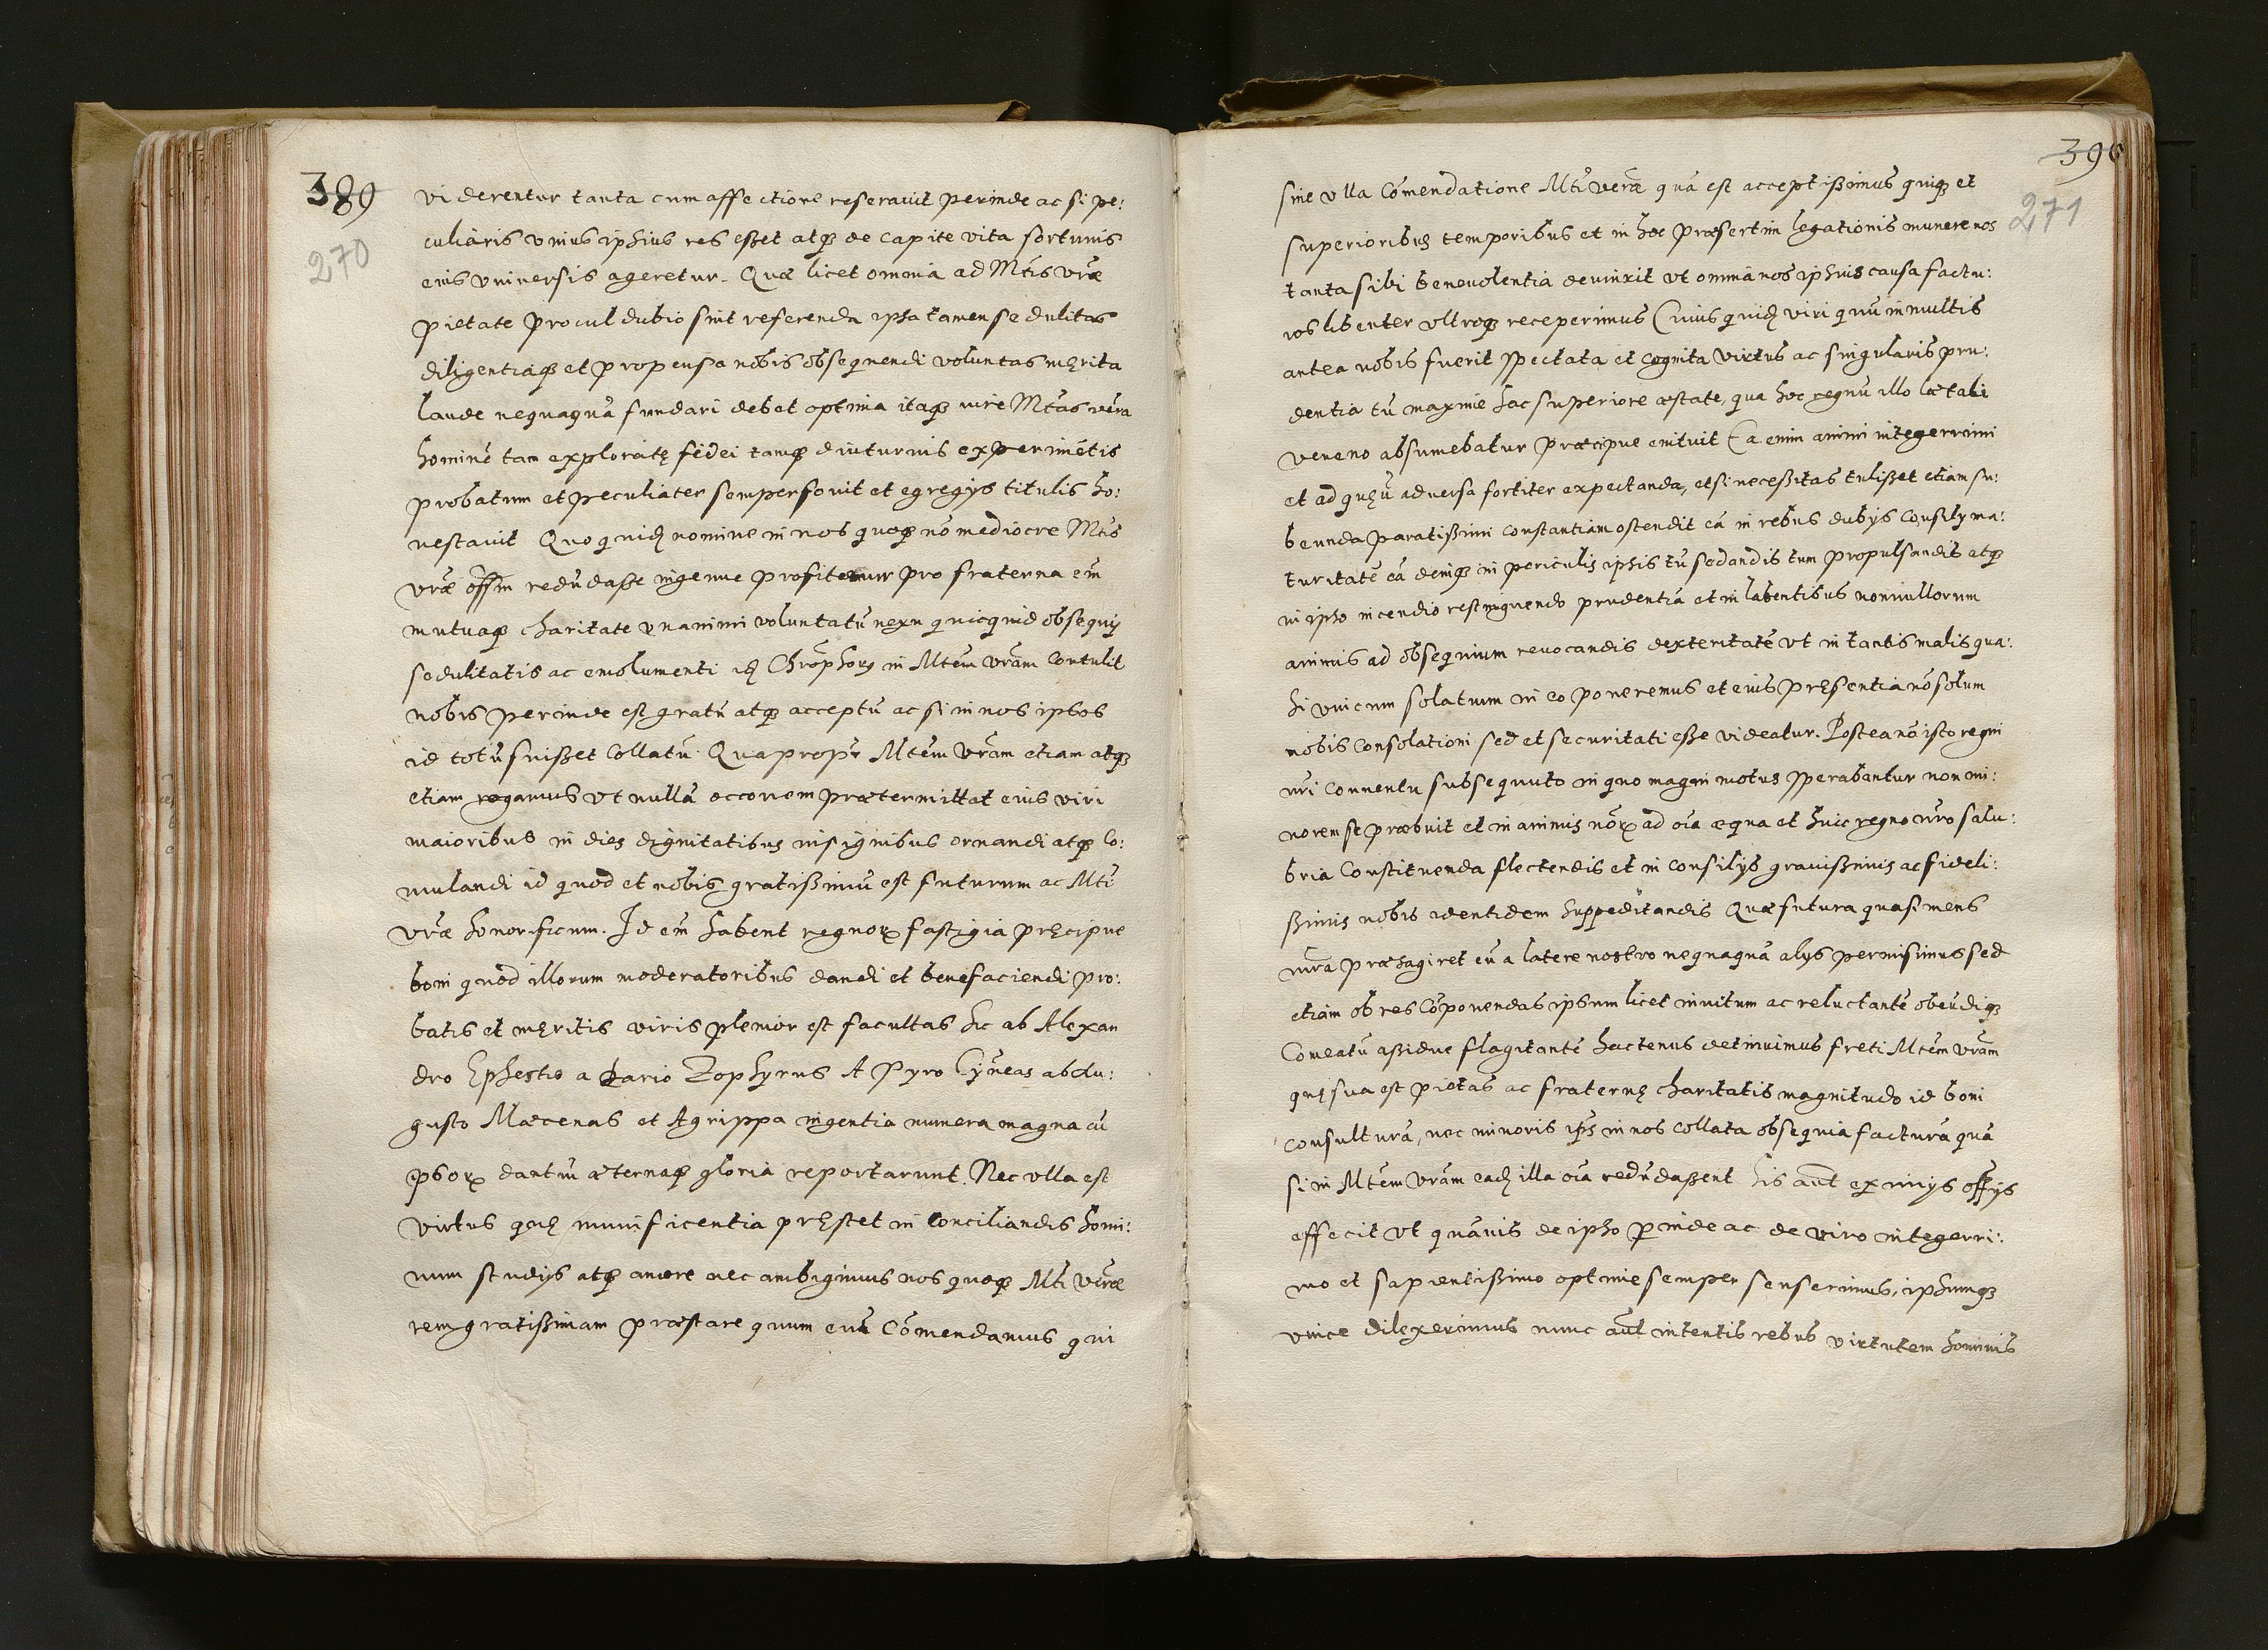 389
270
viderentur tanta cum affectione reseravit perinde ac si pe:
culiaris vnius ipsius res eßet atq3 de capite vita fortunis
eius vniuersis ageretur. Quæ licet omnia ad Mtis vræ
pietate procul dubio sint referenda ipsa tamen sedulitas
diligentiaq3 et propensa nobis obsequendi voluntas męrita
laude nequaquā fundari debet optima itaq3 iure Mtas vra
hominē tam exploratę fidei tamq3 diuturnis experimētis
probatum et peculiater semper fouit et egregijs titulis ho:
nestauit Quo quidē nomine in nos quoq3 nō mediocre Mtis
vræ offm redūdaße ingenue profitemur pro fraterna em
mutuaq3 charitate vnanimi voluntatū nexu quicquid obsequij
sedulitatis ac emolumenti id Chrophorus in Mtem vram contulit
nobis perinde est gratū atq3 acceptū ac si in nos ipsos
id totū fuißet collatū. Quapropr Mtem vram etiam atq3
etiam rogamus vt nullā occonem prætermittat eius viri
maioribus in dies dignitatibus insignibus ornandi atq3 co:
mulandi id quod et nobis gratißimū est futurum ac Mti
vræ honorificum. Id em habent regnorum fastigia pręcipue
boni quod illorum moderatoribus dandi et benefaciendi pro:
batis et męritis viris plenior est facultas sic ab Alexan
dro Ephestio a Dario Zophyrus A Pyro Cyneas ab Au:
gusto Mæcenas et Agrippa ingentia munera magna cū
ipsorum dantiū æternaq3 gloria reportarunt. Nec vlla est
virtus quę munificentia pręstet in conciliandis homi:
num studijs atq3 amore nec ambigimus nos quoq3 Mti vræ
rem gratißimam præstare quum eum cōmendamus qui
390
271
sine vlla cōmendatione Mti veræ quā est acceptißimus quiq3 et
superioribus temporibus et in hoc præsertim legationis munere nos
tanta sibi beneuolentia deuinxit vt omnia nos ipsius causa factu:
ros libenter vltroq3 receperimus Cuius quidē viri quū in multis
antea nobis fuerit spectata et cognita virtus ac singularis pru:
dentia tū maxime hac superiore æstate, qua hoc regnū illo lætali
veneno absumebatur præcipue enituit Ea enim animi integerrimi
et ad quęuis aduersa fortiter expectanda, et si neceßitas tulißet etiam su:
beunda paratißimi constantiam ostendit eā in rebus dubijs consilij ma:
turitatē eā deniq3 in periculis ipsis tū sedandis tum propulsandis atq3
in ipso incendio restinguendo prudentia et in labentibus nonnullorum
animis ad obsequium reuocandis dexteritatē vt in tantis malis qua:
si vnicum solatium in eo poneremus et eius pręsentia nō solum
nobis consolationi sed et securitati eße videatur. Postea nō isto regni
nri conuentu subsequuto in quo magni motus sperabantur non mi:
norem se præbuit et in animis norum ad oia æqua et huic regno nro salu:
bria constituenda flectendis et in consilijs grauißimis ac fideli:
ßimis nobis identidem suppeditandis Quæ futura quasi mens
nra præsagiret eū a latere nostro nequaquā alijs permisimus sed
etiam ob res cōponendas ipsum licet inuitum ac reluctantē obeūdiq3
Comeatū aßidue flagitantē hactenus detinuimus freti Mtem vram
quę sua est pietas ac fraternę charitatis magnitudo id boni
consulturā, nec minoris ipis in nos collata obsequia facturā quā
si in Mtem vram eadē illa oia redūdaßent his aut eximijs offijs
effecit vt quāuis de ipso perinde ac de viro integerri:
mo et sapientißimo optime semper senserimus, ipsumq3
vnice dilexerimus nunc aut intentis rebus virtutem hominis